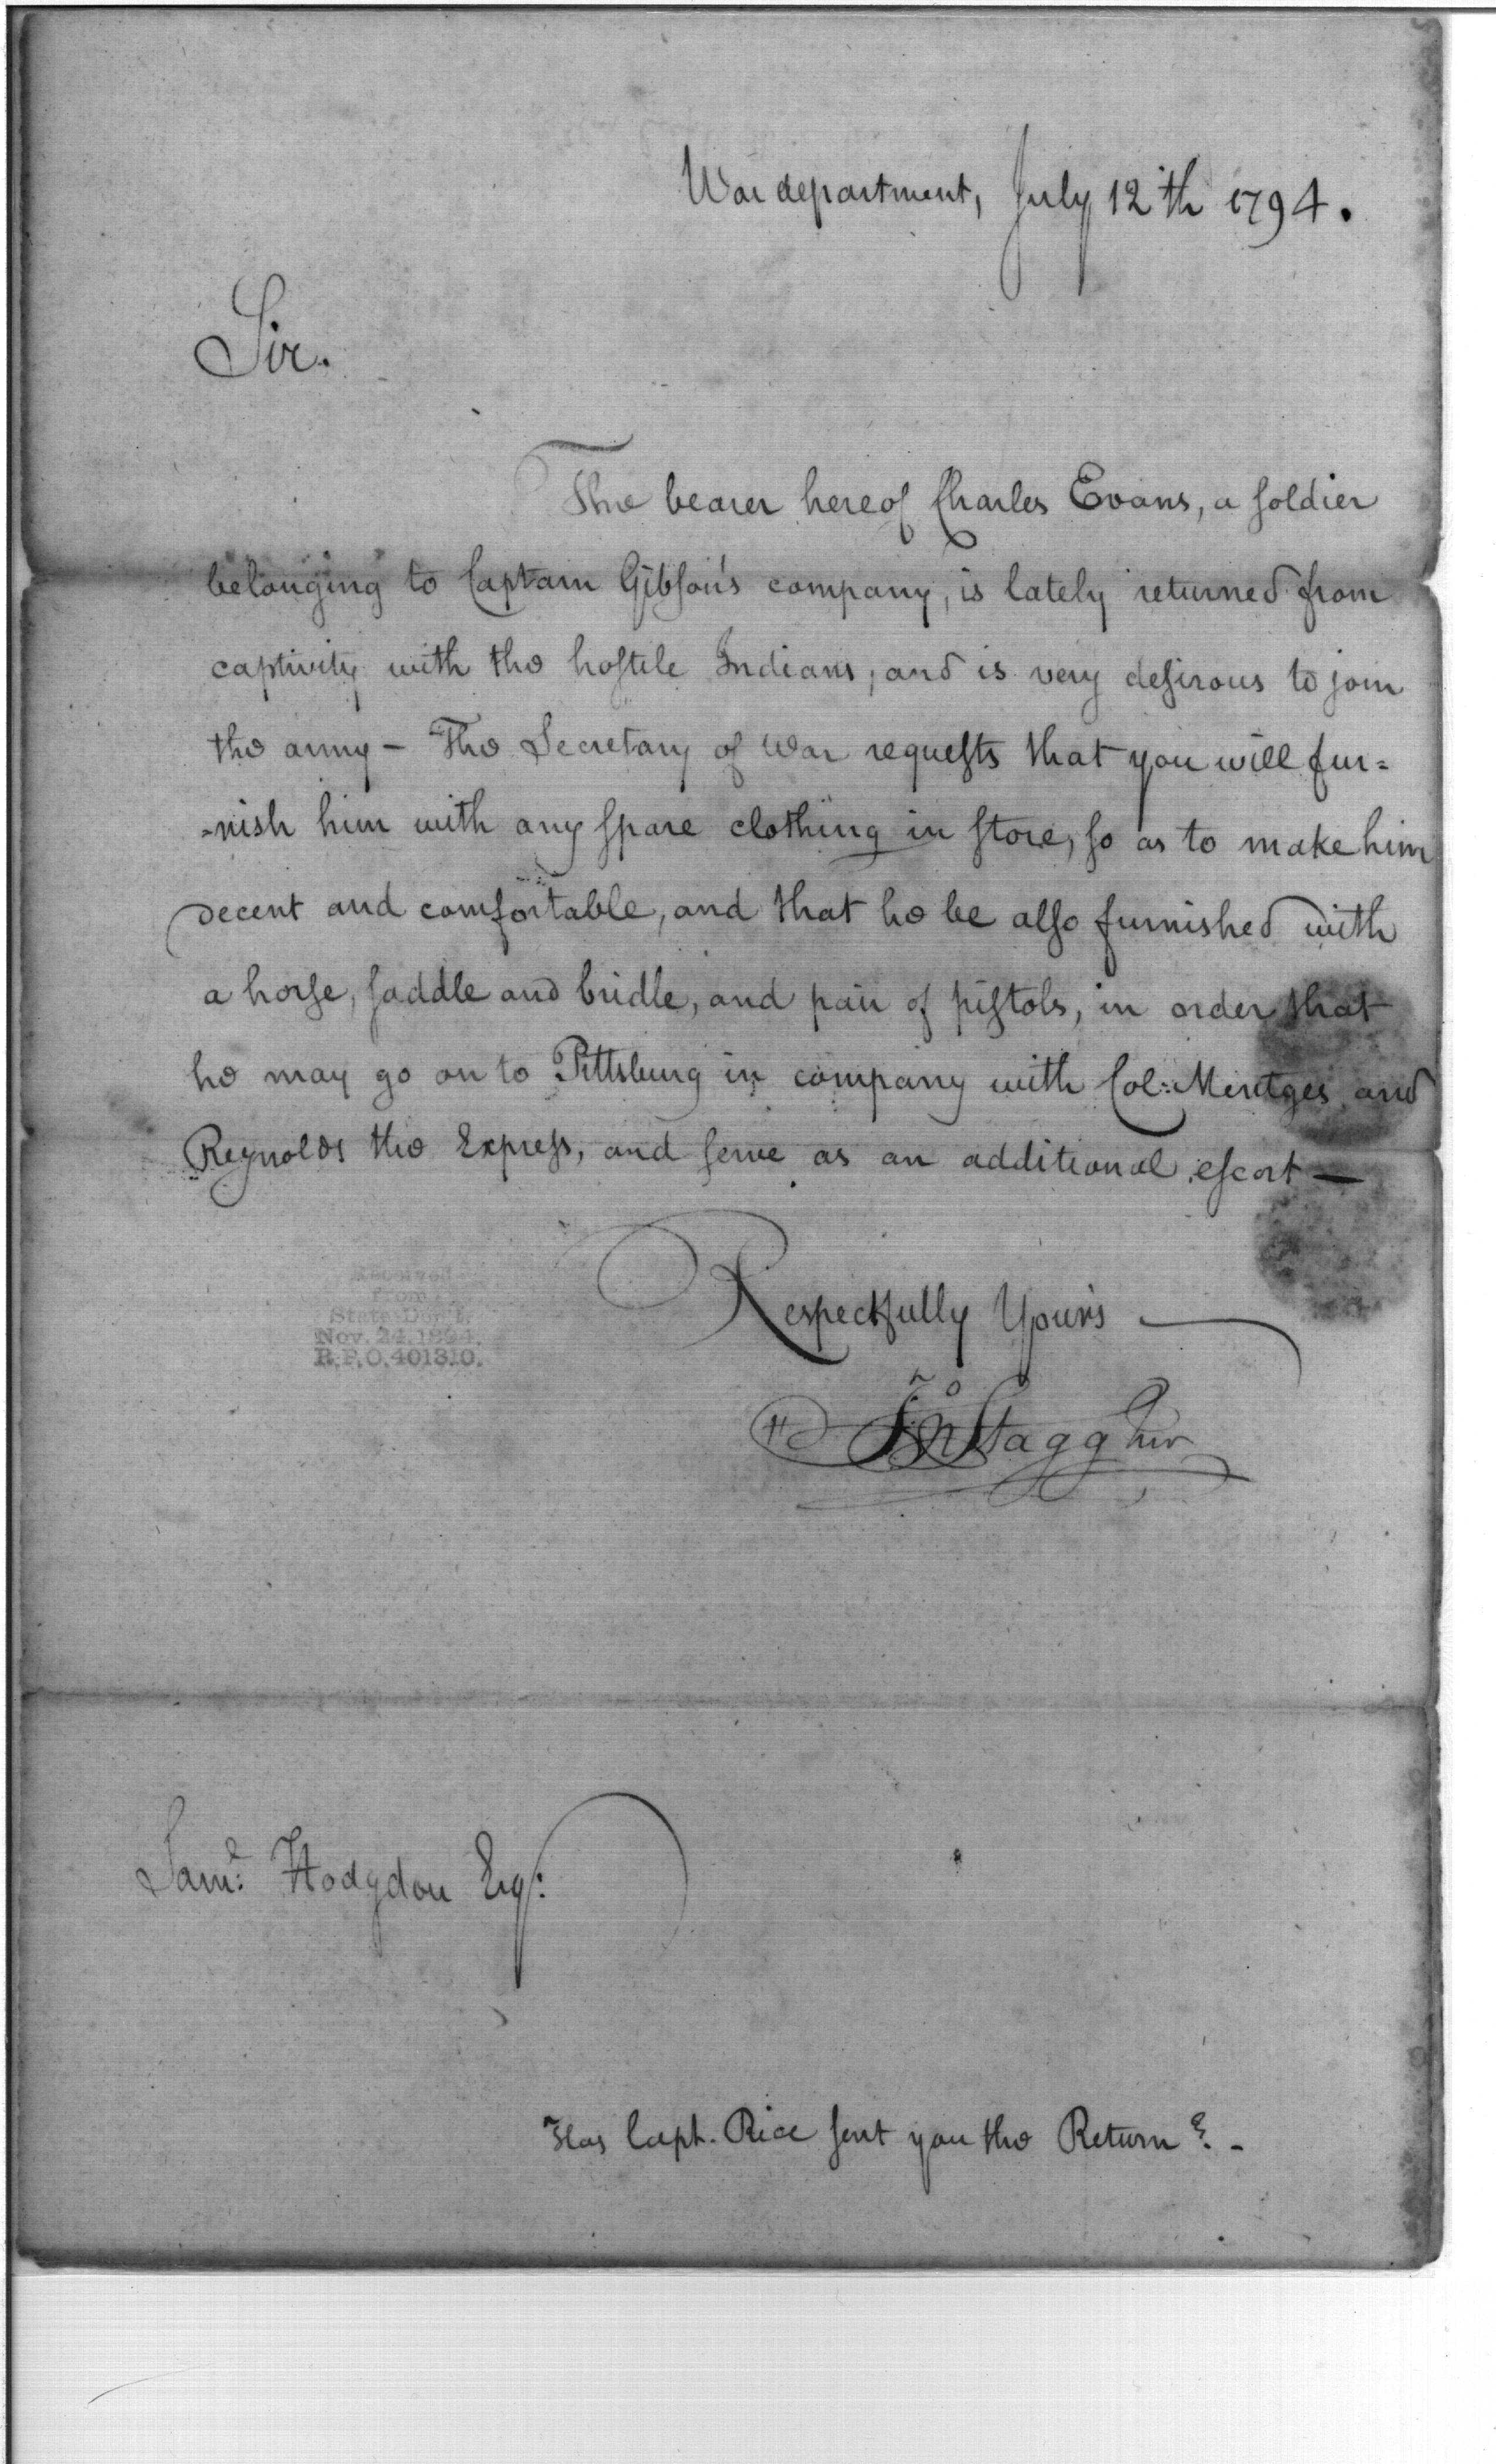 War department, July 12th 1794.
Sir.
The bearer hereof Charles Evans, a soldier
belonging to Captain Gibson's company, is lately returned from
captivity with the hostile Indians, and is very desirous to join
the army - The Secretary of War requests that you will fur=
=nish him with any spare clothing in store, so as to make him
decent and comfortable, and that he be also furnished with
a horse, saddle and bridle, and pair of pistols, in order that
he may go on to Pittsburg in company with Col: Mentges and
Reynolds the Express, and serve as an additional escort —
Respectfully Yours
Jno Stagg Junr
Received
from
State Dep't.
Nov. 24, 1894.
R.P.O. 401310.
Saml: Hodgdon Esq:
Has Capt. Rice sent you the Return? -